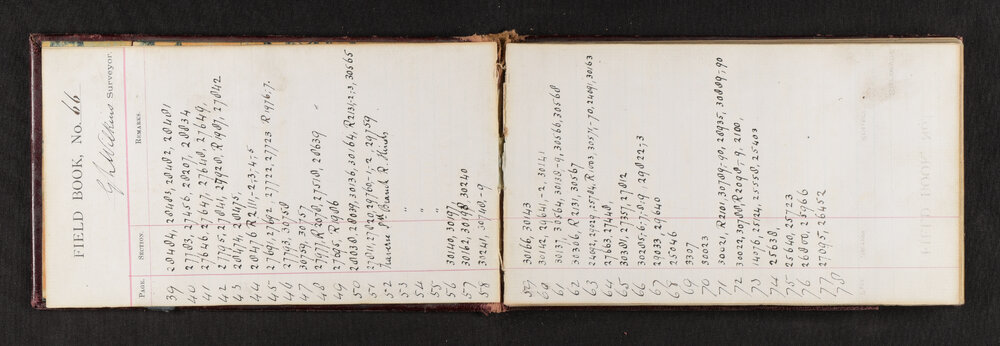 FIELD BOOK, No. 66
Surveyor.
PAGE. SECTION. REMARKS.
39 28484, 28483, 28482, 28481
40 27183, 27456, 28207, 28834
41 27646, 27647, 27648, 27649,
42 27795, 27841, 29928, R1987, 27842
43 28474, 28475,
44 28476 R2111,-2,-3,-4,-5
45 27691, 27692, 27722, 27723 R1976,-7.
46 27793, 30758
47 30759, 30757
48 27977, R2070, 27518, 28639
49 27095, R1906
50 28838, 28839, 30136, 30164, R2131,-2,-3, 30565
51 27819, 27820, 29760,-1,-2, 29759
52 Traverse
53 " "
54 " "
55 " "
56 30140, 30197,
57 30162, 30198, 30240
58 30241, 30748,-9
59 30166, 30143
60 30142, 24641,-2, 30141
61 30137, 30564, 30138,-9, 30566, 30568
62 30306, R2131, 30567
63 30163
64 27663, 27448,
65 30381, 27357, 27812
66 29822,-3
67 29033, 29640
68 25046
69 3307
70 30023
71 30021, R2101, 30789,-90, 28935, 30889,-90
72 30022, 30788, R2098,-9, 2100,
73 14076, 25124, 25558, 25403
74 25638,
75 25640, 25723
76 26800, 25966
77 27095, 26452
78